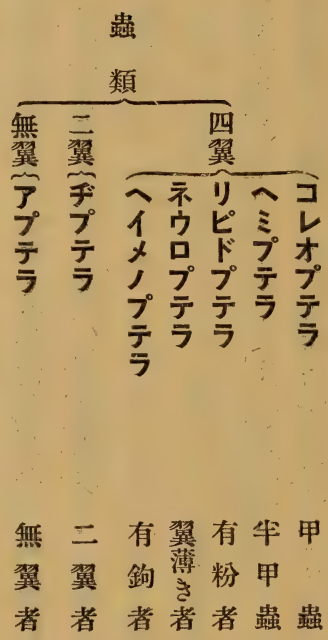 蟲類
四翼
コレオプテラ 甲蟲
ヘミプテラ 半甲蟲
リピドプテラ 有粉者
ネウロプテラ 翼薄き者
ヘイメノプテラ 有鉤者
二翼
ヂプテラ 二翼者
無翼
アプテラ 無翼者